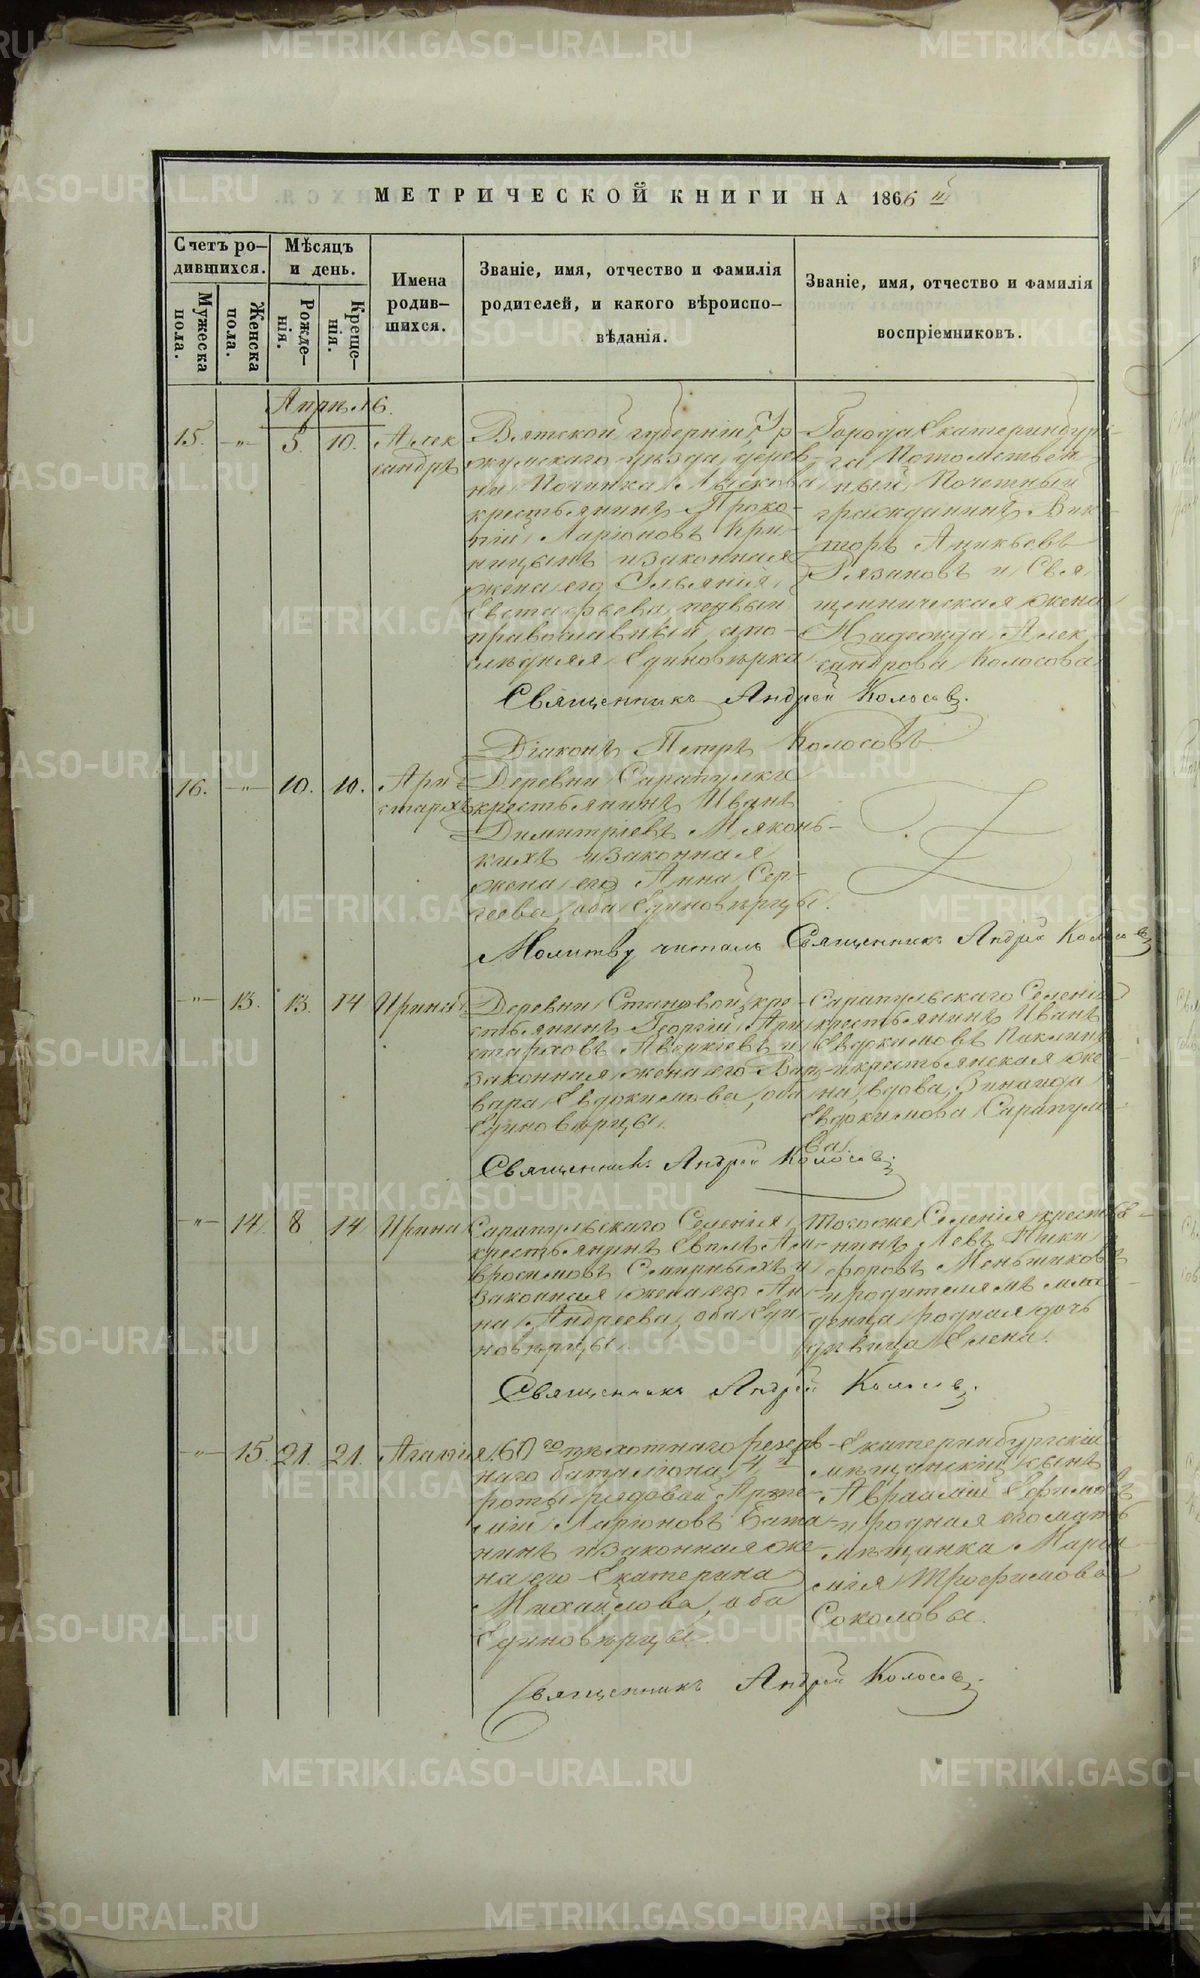 МЕТРИЧЕСКОЙ КНИГИ НА 1866 й
Счетъ ро-
дившихся.
Мужеска
пола.
Женска
пола.
Мѣсяцъ
и день.
Рожде-
нія.
Креще-
нія.
Имена
родив-
шихся.
Званіе, имя, отчество и фамилія
родителей, и какого вѣроиспо-
вѣданія.
Званіе, имя, отчество и фамилія
воспріемниковъ.
Апрель
15. -"- 5. 10. Алек
сандръ
Вятской губерніи, Ур
жумскаго уѣзда, дерев-
ни Починка
крестьянинъ Проко-
пій Ларіоновъ Кри-
ницынъ и законная
жена его Ульянія
Евстафьева, первый
православный, а по-
слѣдняя Единовѣрка
Города Екатеринбур-
га Потомствен-
ный Почетный
гражданинъ Вик-
торъ Аникіевъ
Рязановъ и Свя
щенническая жена
Надежда Алек
сандрова Колосова
Священникъ Андрей Колосовъ.
Діаконъ Петръ Колосовъ
16. -"- 10. 10. Ари-
стархъ
Деревни Сарапулки
крестьянинъ Иванъ
Димитріевъ Мяконь-
кихъ и законная
жена его Анна Сер-
геева, оба Единовѣрцы.
Молитву читалъ Священникъ Андрей Колосовъ
-"- 13. 13. 14 Ирина
Деревни Становой, кре-
стьянинъ Георгій Ари
старховъ Аверкіевъ и
законная жена его Вар-
вара Евдокимова, оба
Единовѣрцы.
Сарапульскаго Селенія
крестьянинъ Иванъ
Евдокимовъ Паклинъ
и крестьянская же-
на, вдова, Зинаида
Евдокимова Сарапуло-
ва
Священникъ Андрей Колосовъ.
-"- 14. 8 14 Ирина
Сарапульскаго Селенія
крестьянинъ Евплъ Ам-
вросимовъ Смирныхъ и
законная жена его Ан
на Андреева, оба Еди-
новѣрцы.
того же Селенія крестья-
нинъ Левъ Ники
форовъ Меньшиковъ
и родителямъ мла-
денца родная дочь
дѣвица Елена.
Священникъ Андрей Колосовъ.
-"- 15. 21. 21. Агафія
60го пѣхотнаго резерв-
наго баталіона, 4й
роты рядовой Арте-
мій Ларіоновъ
нинъ и законная же-
на его Екатерина
Михайлова, оба
Единовѣрцы.
Екатеринбургскій
мѣщанскій сынъ
Авраамій Ефимовъ
и родная его мать
мѣщанка Марѳа
Трофимова
Соколовы.
Священникъ Андрей Колосовъ.
METRIKI.GASO-URAL.RU